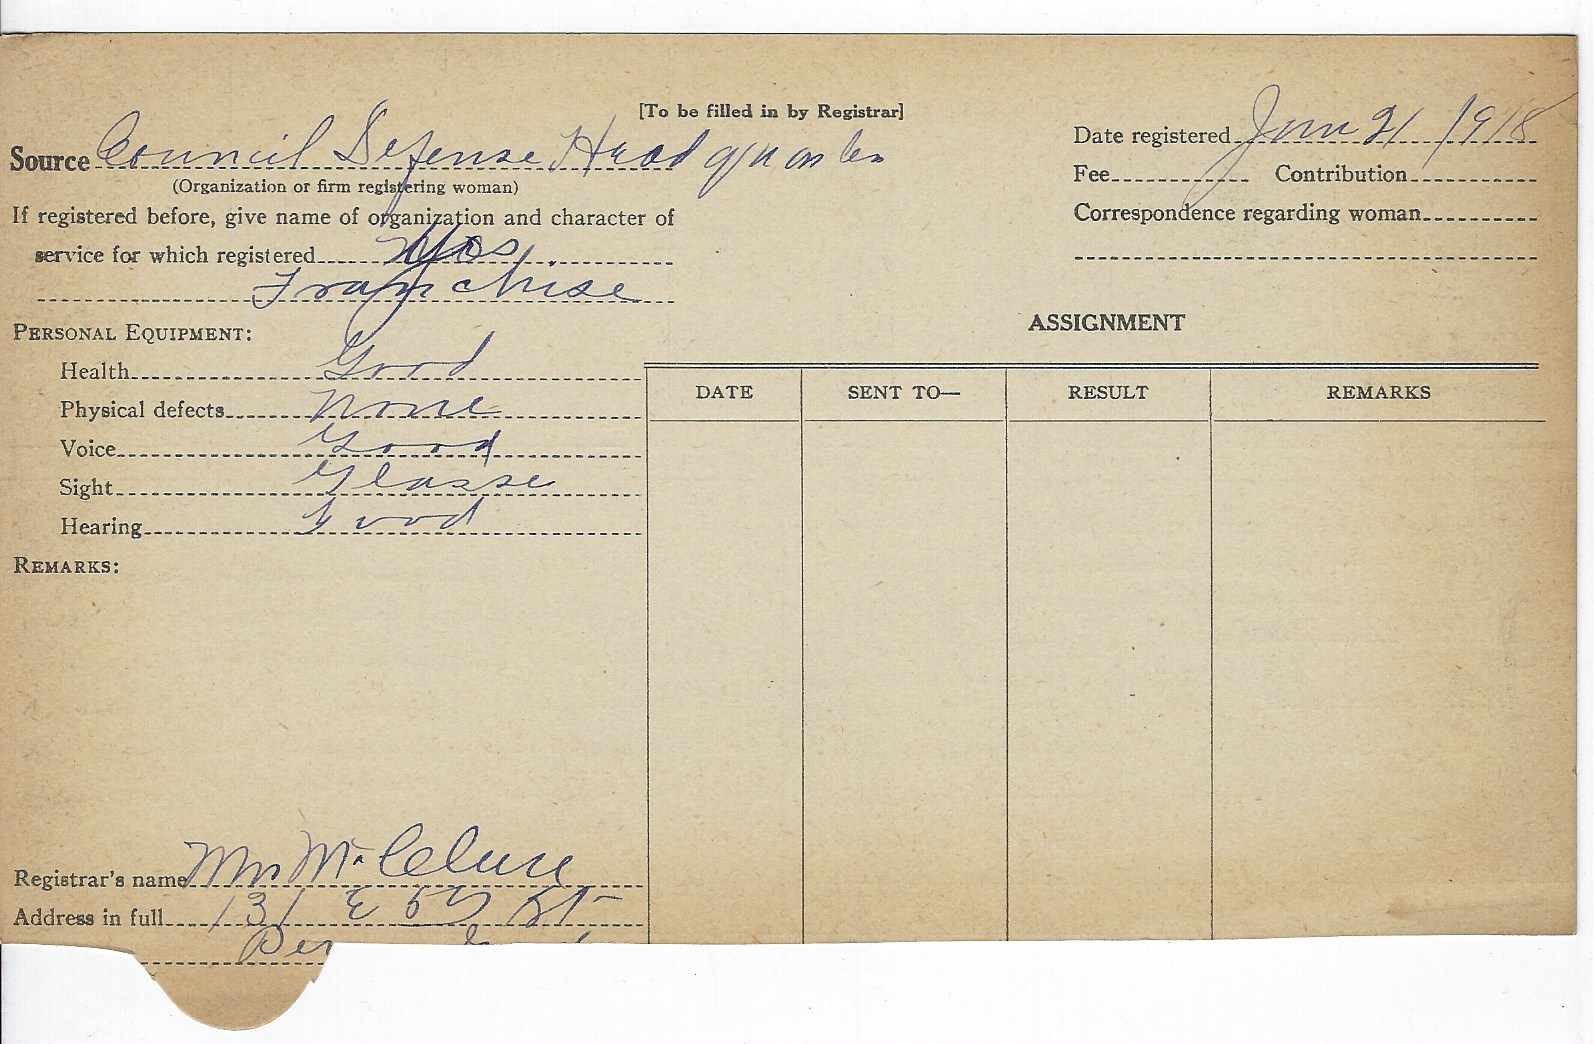 [To be filled in by Registrar]
Source Council Defense Headquarters
(Organization or firm registering woman)
Date registered Jun 21 1918
Fee Contribution
Correspondence regarding woman
If registered before, give name of organization and character of
service for which registered Yes
Franchise
PERSONAL EQUIPMENT:
Health Good
Physical defects None
Voice Good
Sight Glasse
Hearing Good
REMARKS:
ASSIGNMENT
DATE SENT TO— RESULT REMARKS
Registrar's name Mrs McClure
Address in full 131 E St